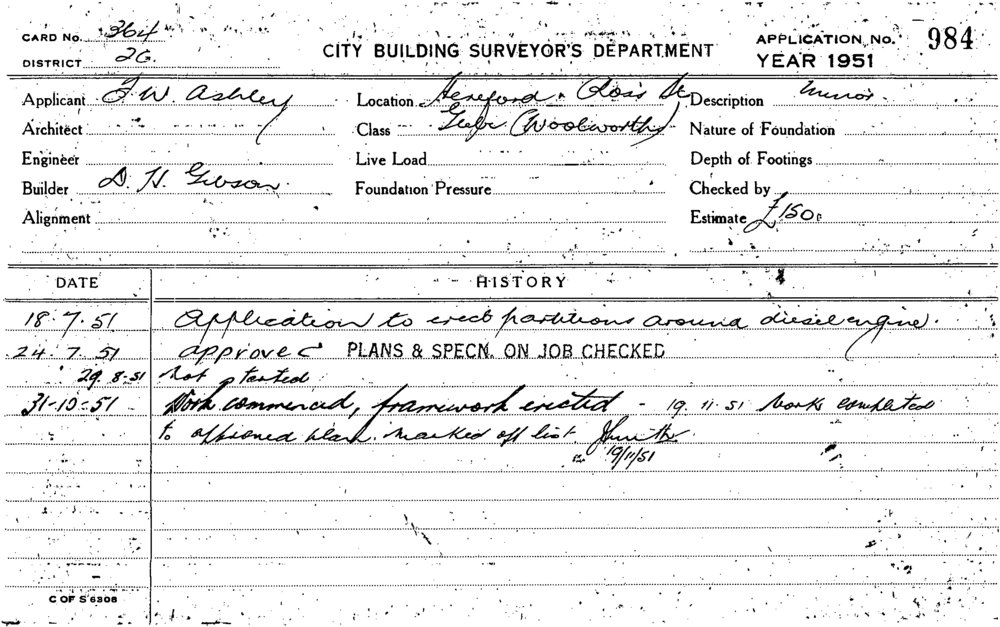 CARD No. 364
DISTRICT 2G.
CITY BUILDING SURVEYOR'S DEPARTMENT
APPLICATION No. 984
YEAR 1951
Applicant F. W. Ashley Location Hereford & Ross St Description Minor
Architect Class Glebe (Woolworths) Nature of Foundation
Engineer Live Load Depth of Footings
Builder D. H. Gibson Foundation Pressure Checked by
Alignment Estimate £150
DATE HISTORY
18.7.51 Application to erect partitions around diesel engine.
24.7.51 approved PLANS & SPECN. ON JOB CHECKED
29.8.51 Not started
31-10-51 Work commenced, framework erected - 19.11.51 Work completed
to approved plan. Marked off list. JSmith
19/11/51
C OF S 6308